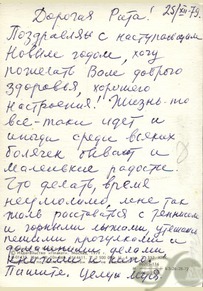 Дорогая Рита! 25/XII-79.
Поздравляю с наступающим
Новым годом, хочу
пожелать Вам доброго
здоровья, хорошего
настроения! Жизнь-то
все-таки идет и
иногда среди всяких
болячек бывают и
маленькие радости.
Что делать, время
неумолимо, мне так
жаль расставаться с теннисом
и горными лыжами, утешаюсь
пешими прогулками и
домашними делами
и кино.
Пишите. Целую